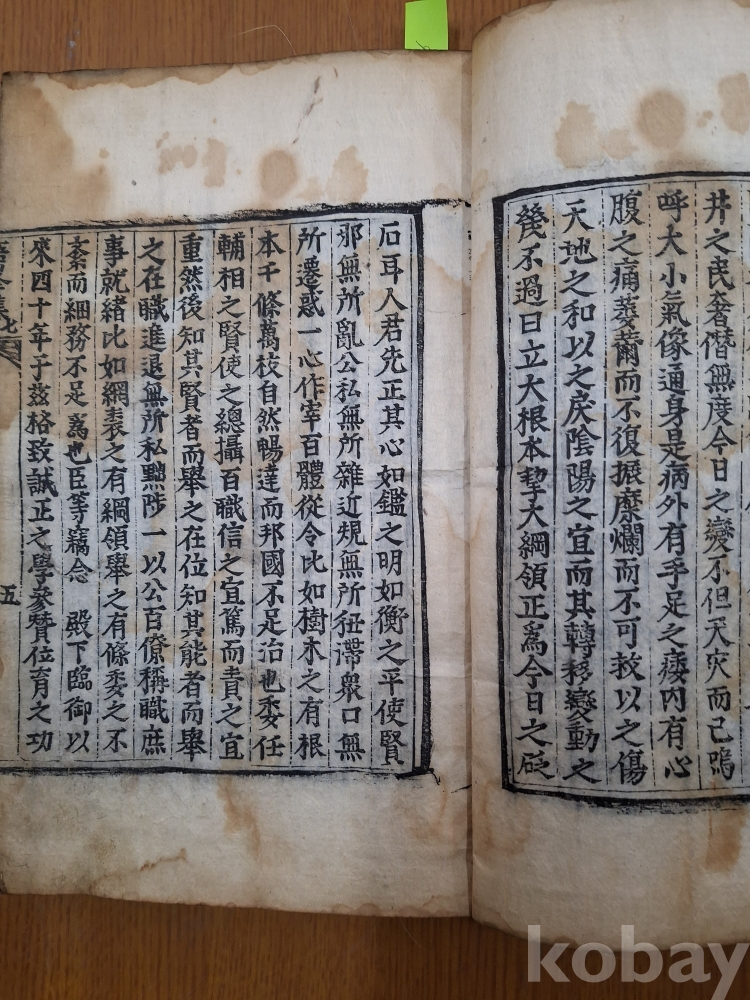 井之民奢僭無度今日之變不但天灾而已嗚
呼大小氣像通身是病外有手足之痿內有心
腹之痛萎薾而不復振糜爛而不可救以之傷
天地之和以之戾陰陽之宜而其轉移變動之
幾不過曰立大根本挈大綱領正爲今日之砭
石耳人君先正其心如鑑之明如衡之平使賢
邪無所亂公私無所雜近規無所狃滯衆口無
所遷惑一心作宰百體從令比如樹木之有根
本千條萬枝自然暢達而邦國不足治也委任
輔相之賢使之總攝百職信之宜篤而責之宜
重然後知其賢者而舉之在位知其能者而舉
之在職進退無所私黜陟一以公百僚稱職庶
事就緖比如網裘之有綱領舉之有條委之不
紊而細務不足爲也臣等竊念 殿下臨御以
來四十年于玆格致誠正之學參贊位育之功
集 七
五
kobay